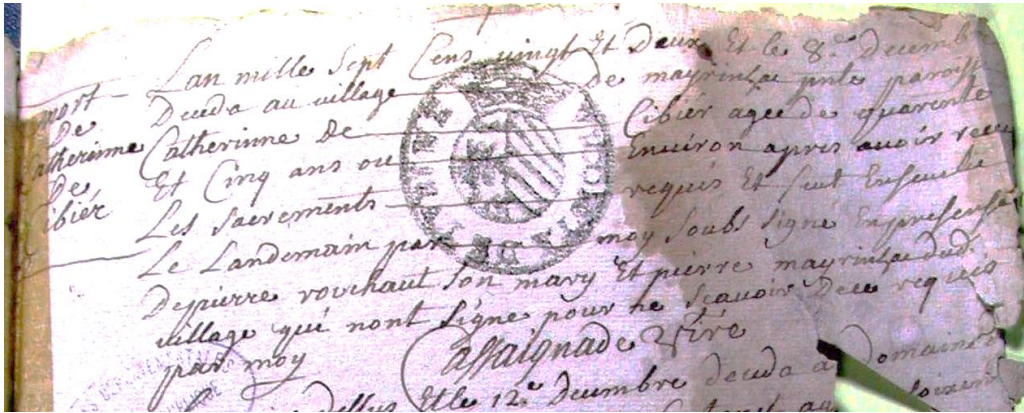 mort
de
Catherinne
de
Cibiér
Lan mille Sept Cens vingt Et Deux Et le 8.e Decemb
Deceda au village de mayrinhac pnte paroisse
Catherinne de Cibier agee de quarente
Et Cinq ans ou Environ apres avoir receu
Les Sacrements requis Et fut Ensevelie
Le Landemain par moy Soubs signé Enpresense
Depierre rouchaut son mary Et pierre mayrinhac dud
village qui nont Signe pour ne Scavoir Dece requis
par moy Cassaignade Vire
Et le 12e Decembre deceda a Domaine